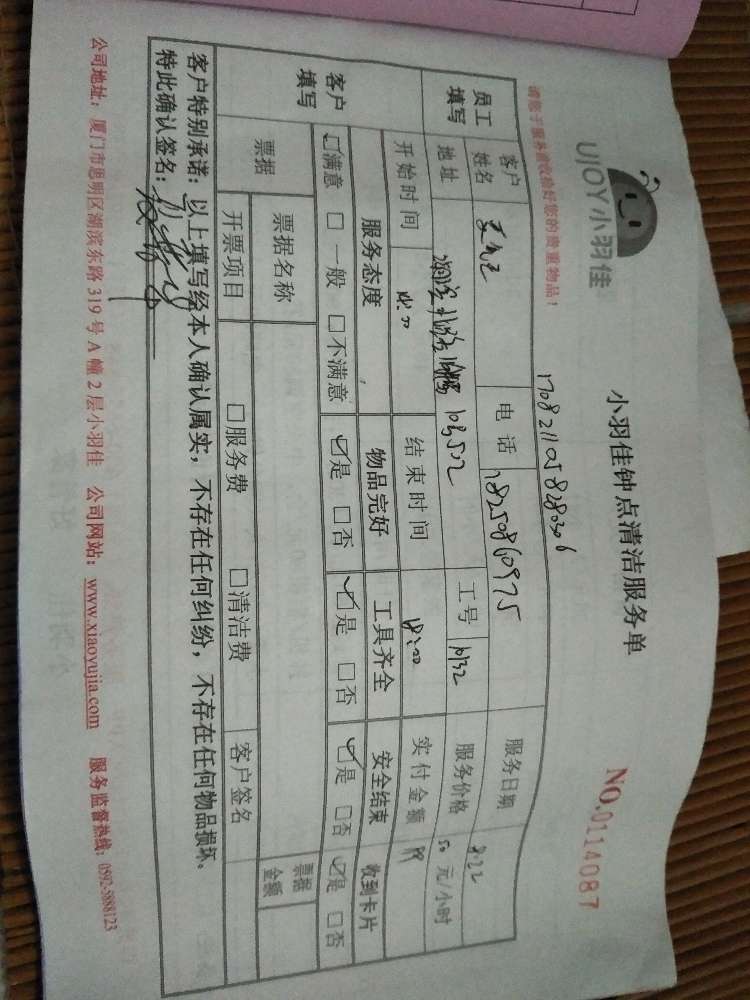 UJOY小羽佳
小羽佳钟点清洁服务单
NO.0114087
请您于服务前收拾好您的贵重物品!
1708211058280306
员工填写
客户姓名
电话 18250860975
服务日期 8.22
地址
103502
工号 1032
服务价格 50 元/小时
开始时间
结束时间 18:00
实付金额
客户填写
服务态度 物品完好 工具齐全 安全结束 收到卡片
☑满意 □一般 □不满意 ☑是 □否 ☑是 □否 ☑是 □否 ☑是 □否
票据 票据名称 票据金额
开票项目 □服务费 □清洁费 客户签名
客户特别承诺:以上填写经本人确认属实,不存在任何纠纷,不存在任何物品损坏。
特此确认签名:
公司地址:厦门市思明区湖滨东路 319 号 A 幢 2 层小羽佳 公司网站:www.xiaoyujia.com 服务监督热线:0592-5888123